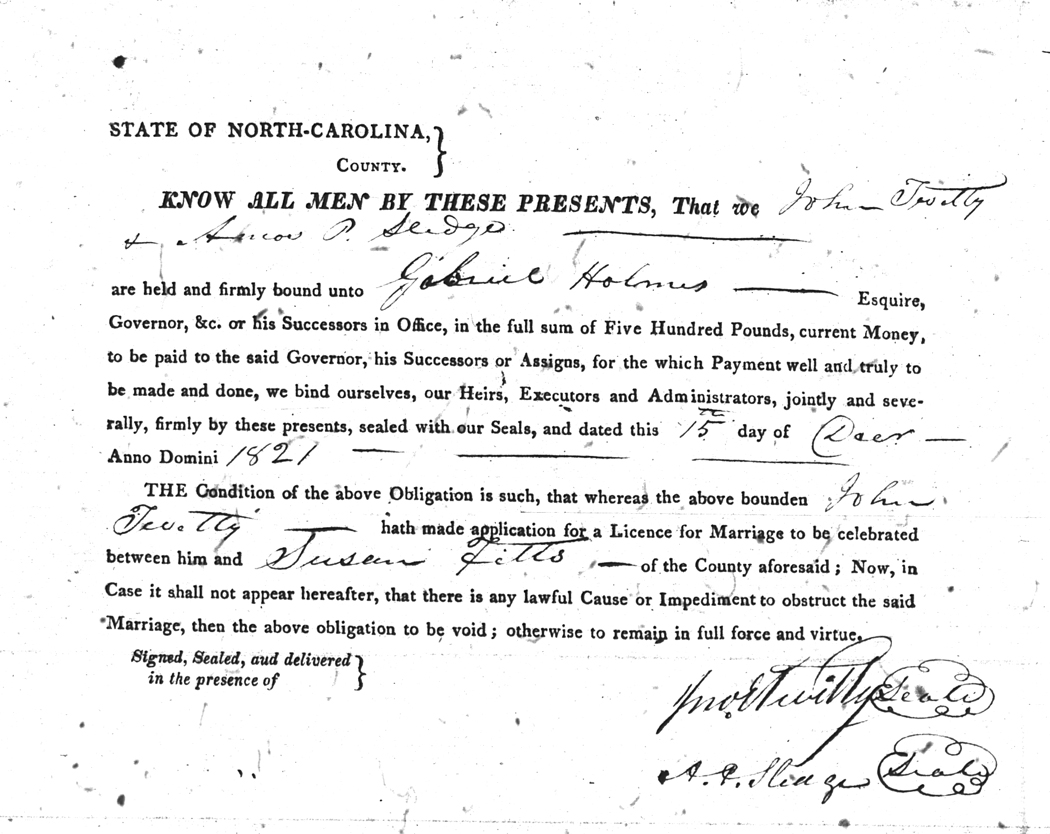 STATE OF NORTH-CAROLINA, }
COUNTY.
KNOW ALL MEN BY THESE PRESENTS, That we John Twitty
& Amos P. Sledge
are held and firmly bound unto Gabriel Holmes Esquire,
Governor, &c. or his Successors in Office, in the full sum of Five Hundred Pounds, current Money,
to be paid to the said Governor, his Successors or Assigns, for the which Payment well and truly to
be made and done, we bind ourselves, our Heirs, Executors and Administrators, jointly and seve-
rally, firmly by these presents, sealed with our Seals, and dated this 15th day of Decr
Anno Domini 1821
THE Condition of the above Obligation is such, that whereas the above bounden John
Twitty hath made application for a Licence for Marriage to be celebrated
between him and Susan Fitts of the County aforesaid; Now, in
Case it shall not appear hereafter, that there is any lawful Cause or Impediment to obstruct the said
Marriage, then the above obligation to be void; otherwise to remain in full force and virtue.
Signed, Sealed, aud delivered }
in the presence of
Jno. E Twitty Seal
A. P. Sledge Seal